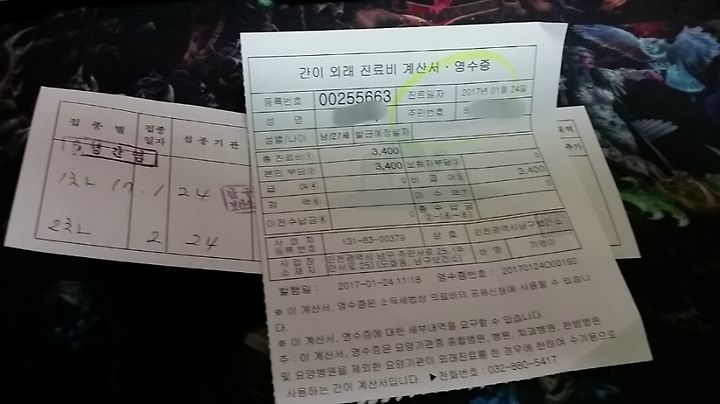 간이 외래 진료비 계산서 · 영수증
등록번호 00255663 진료일자 2017년 01월 24일
성 명 주민번호 8
성별/나이 남/27세 발급예정일자
총 진료비① 3,400
본인 부담② 3,400 보험자부담③ 0
급 여④ 0 비 급 여⑤ 3,400
감 액⑥ 0 미 수 액⑦ 0
이전수납금⑧ 0 총 수 납 금
사 업 자 등 록 번 호 131-83-00379 상 호 인천광역시남구보건소
사 업 장 소 재 지 인천광역시 남구 주안서로 25) (도화동, 남구보건소) 성 명
발행일 : 2017-01-24 11:18 영수증번호 : 20170124O00192
※ 이 계산서, 영수증은 소득세법상 의료비의 공제신청에 사용할 수 있습니다.
※ 이 계산서, 영수증에 대한 세부내역을 요구할 수 있습니다.
주 : 이 계산서, 영수증은 요양기관중 종합병원, 병원, 치과병원, 한방병원
및 요양병원을 제외한 요양기관이 외래진료를 한 경우에 한하여 수기용으로
사용하는 간이 계산서입니다. ▶전화번호 : 032-880-5417
접 종 별 접종일자 접 종 기 관
1차 17. 1 24
2차 2 24